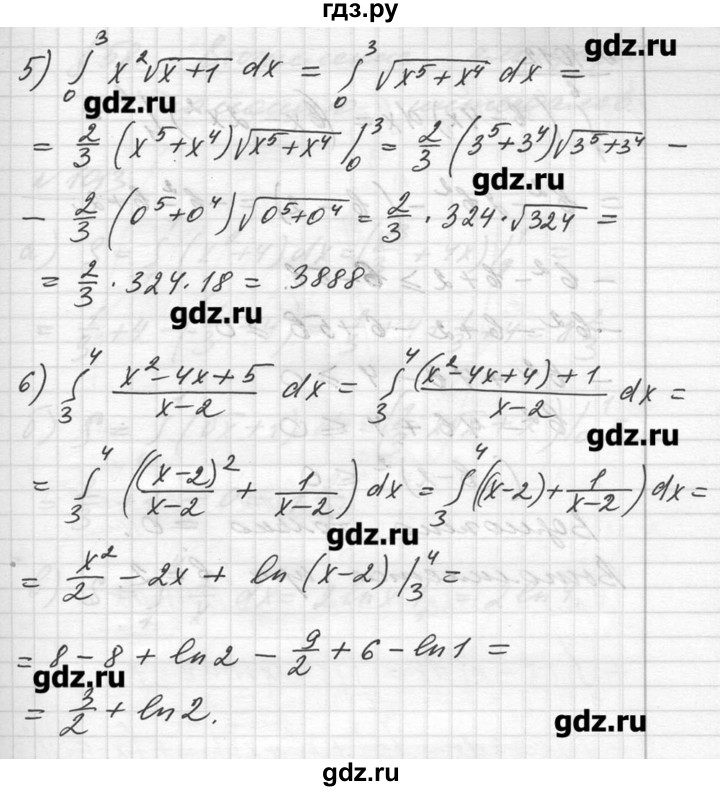 гдз.ру
5) ∫₀³ x²√(x+1) dx = ∫₀³ √(x⁵+x⁴) dx =
gdz.ru
gdz.ru
= 2/3 (x⁵+x⁴)√(x⁵+x⁴) |₀³ = 2/3 (3⁵+3⁴)√(3⁵+3⁴) −
gdz.ru
− 2/3 (0⁵+0⁴)√(0⁵+0⁴) = 2/3 · 324 · √324 =
= 2/3 · 324 · 18 = 3888
gdz.ru
6) ∫₃⁴ (x²−4x+5)/(x−2) dx = ∫₃⁴ ((x²−4x+4)+1)/(x−2) dx =
gdz.ru
= ∫₃⁴ ((x−2)²/(x−2) + 1/(x−2)) dx = ∫₃⁴ ((x−2)+1/(x−2)) dx =
gdz.ru
= x²/2 − 2x + ln(x−2) |₃⁴ =
= 8 − 8 + ln2 − 9/2 + 6 − ln1 =
gdz.ru
= 3/2 + ln2.
gdz.ru
gdz.ru